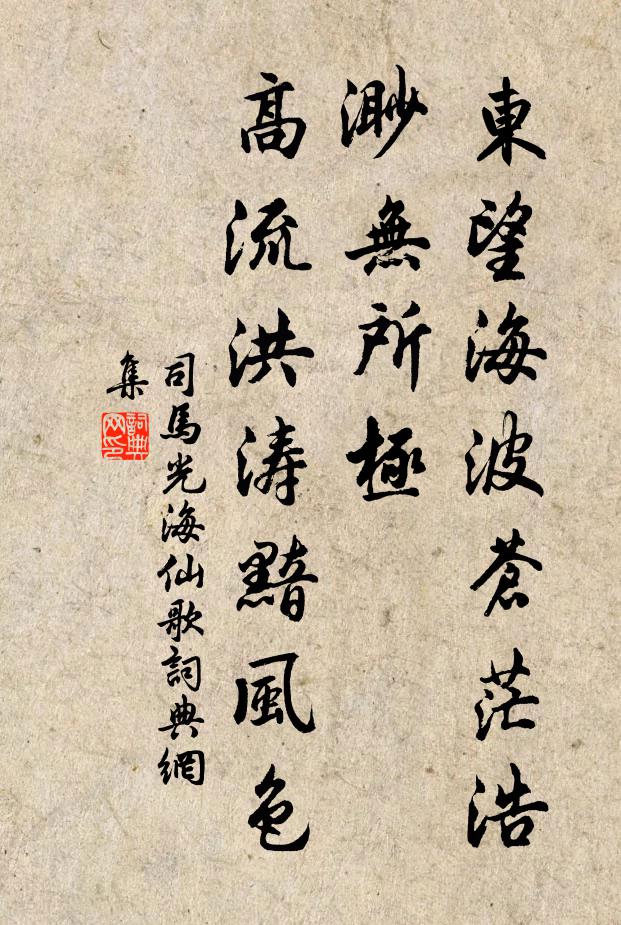 東望海波蒼茫浩
渺無所極
高流洪濤黯風色
司馬光海仙歌詞典網
集
詞典
网印